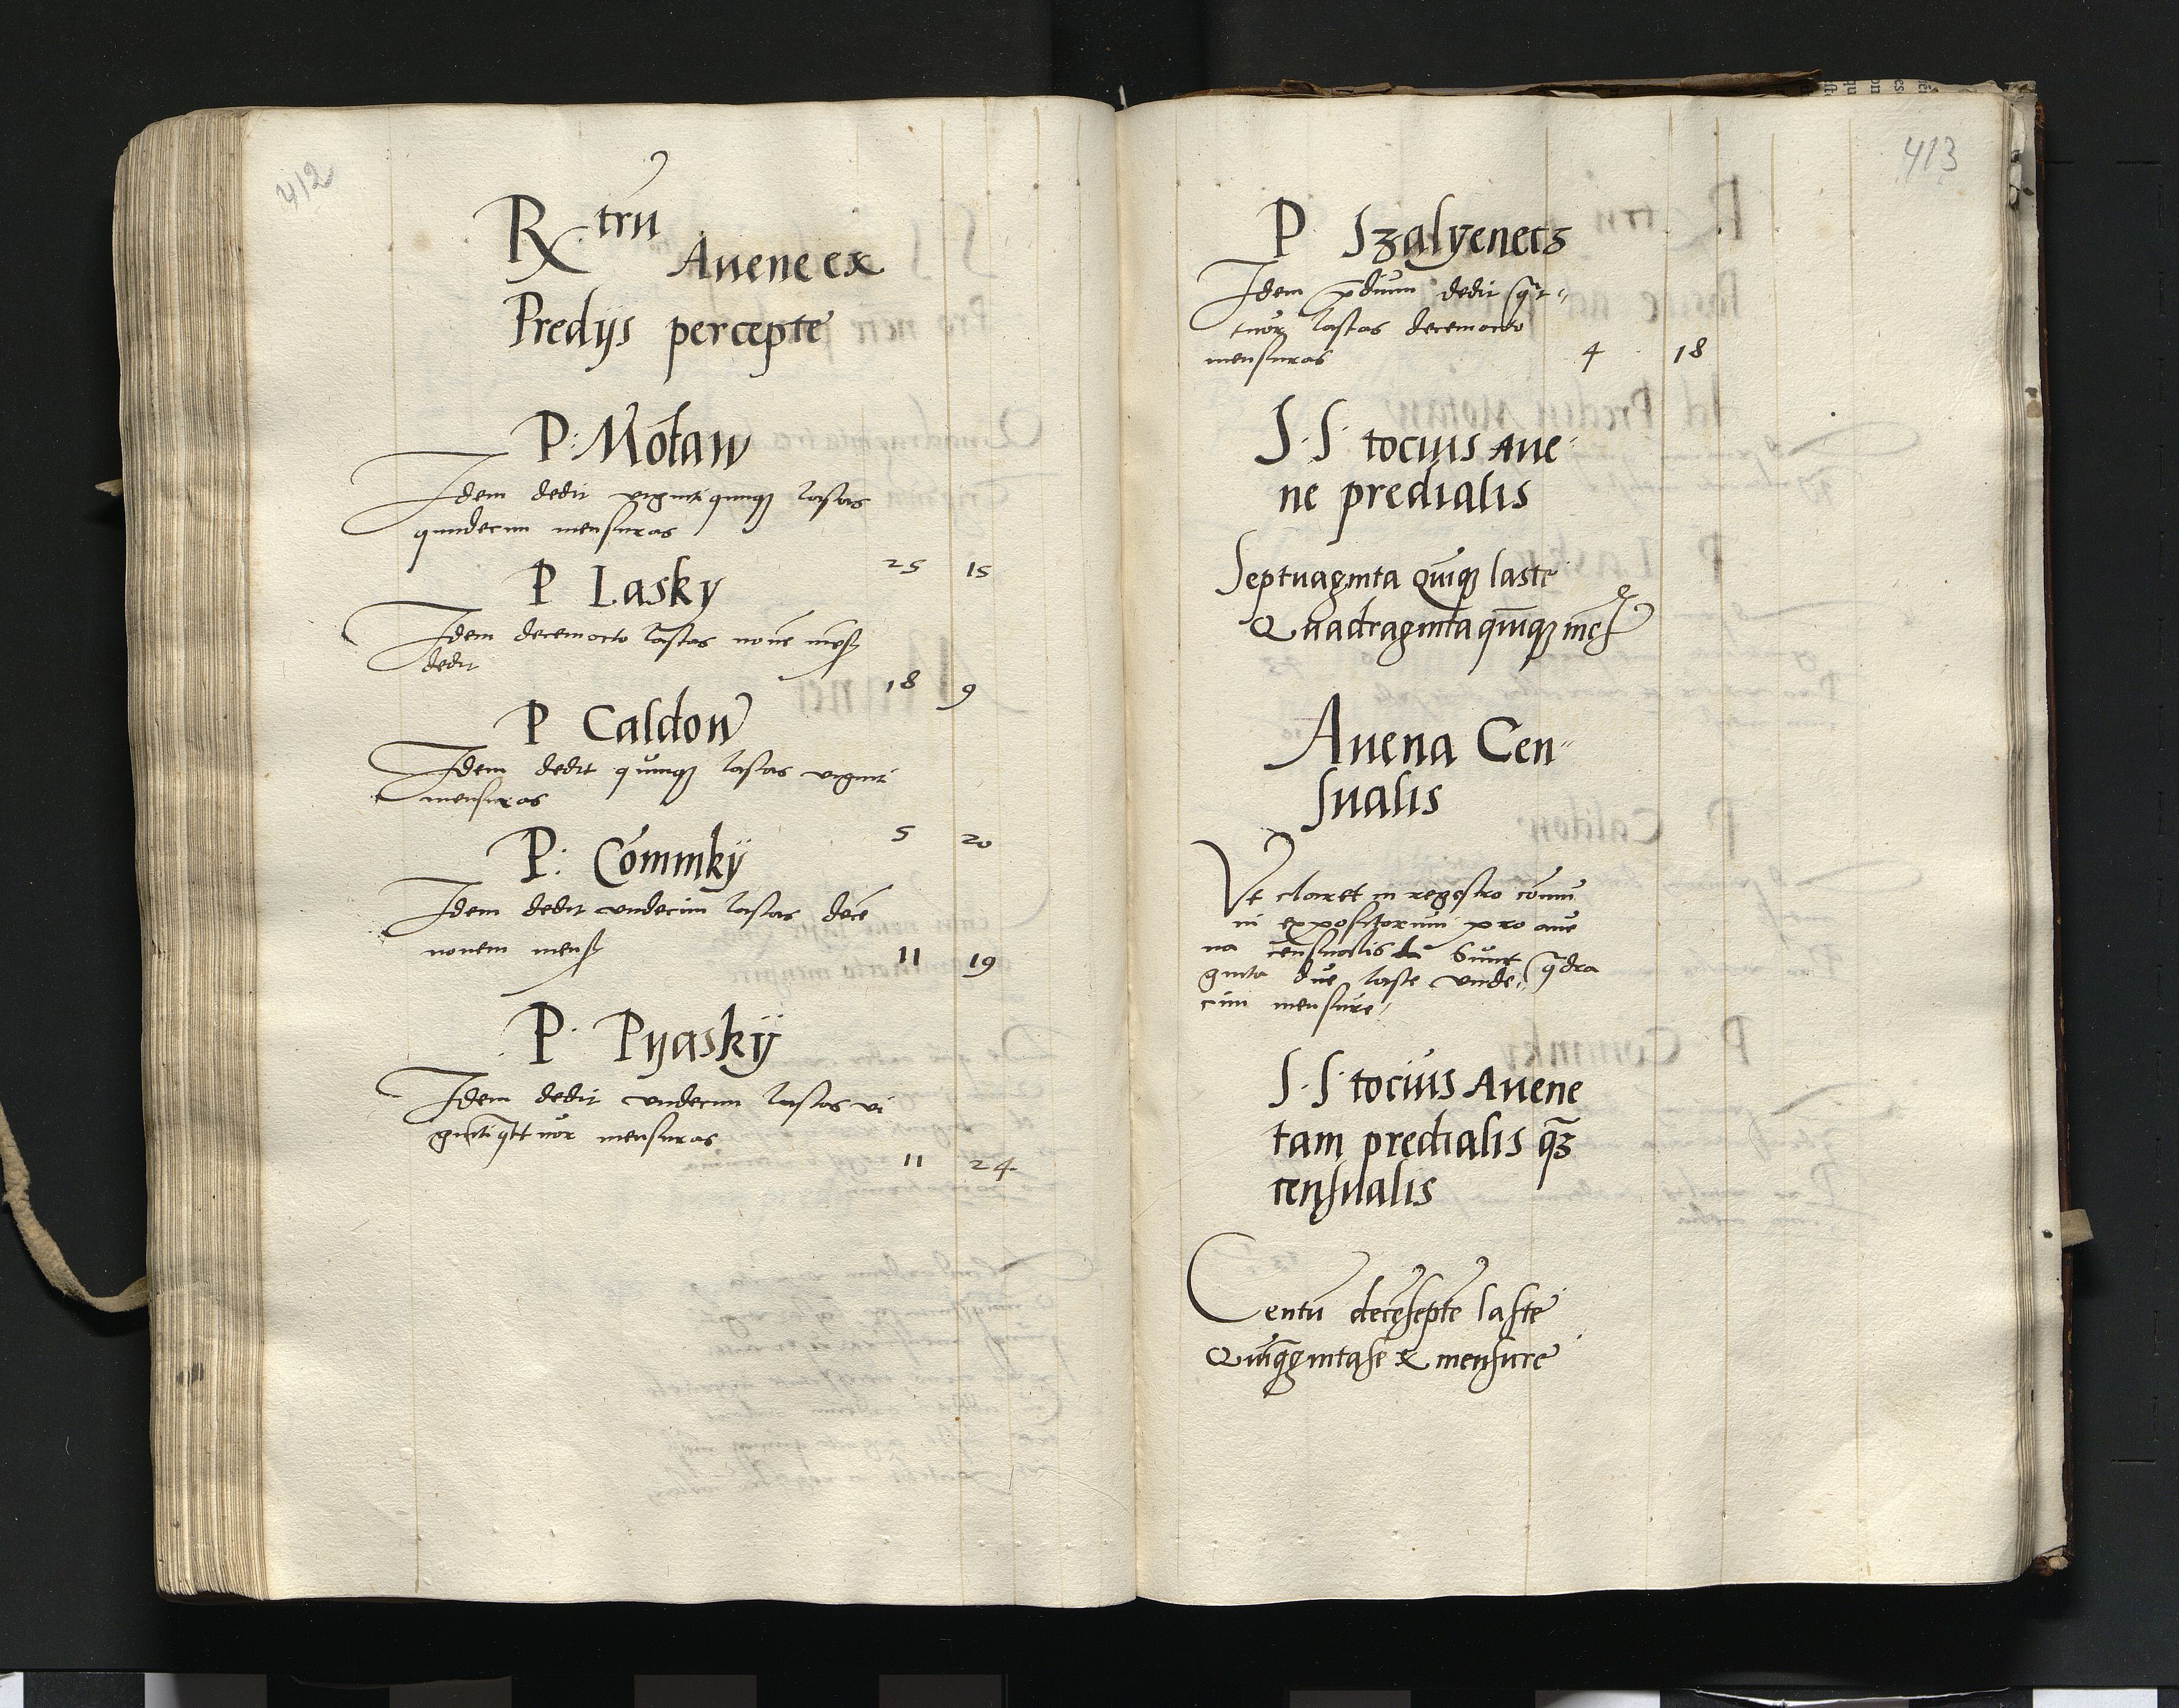 412
Rx trū
Auene ex
Predijs percepte
P: Motaw
Idem dedit viginti quinqȝ lastas
quindecim mensuras
25 15
P Lasky
Idem decemocto lastas nouē mēs
dedit
18 9
P Caldow
Idem dedit quinqȝ lastas viginti
mensuras
5 20
P: Commky
Idem dedit vndecim lastas decē
nouem mens
11 19
P. Pyasky
Idem dedit vndecim lastas vi
gintiqttuor mensuras
11 24
413
P Szalyenecz
Idem p̄dium dedit qt-
tuor lastas decemocto
mensuras 4 18
S. S. tocius Aue
ne predialis
Septuaginta Quiqȝ laste
Quadraginta quiqȝ mēs
Auena Cen-
sualis
Vt claret in regestro cōmu
ni expositorum pro aue
na censualis Sunt qdra
ginta due laste vnde-
cim mensure
S. S. tocius Auene
tam predialis qȝ
censualis
Centū decēseptē laste
Quīqgintasex mensure